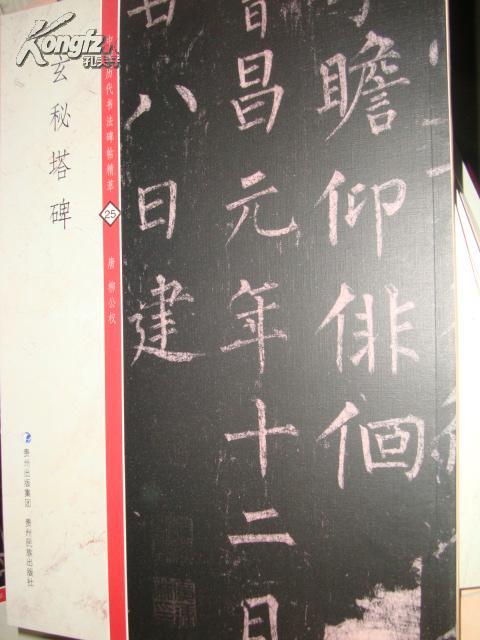 Kongfz.com
孔夫子
玄秘塔碑
贵州出版集团 贵州民族出版社
历代书法碑帖精萃
25
唐 柳公权
瞻仰徘徊
昌元年十二月
廿八日建